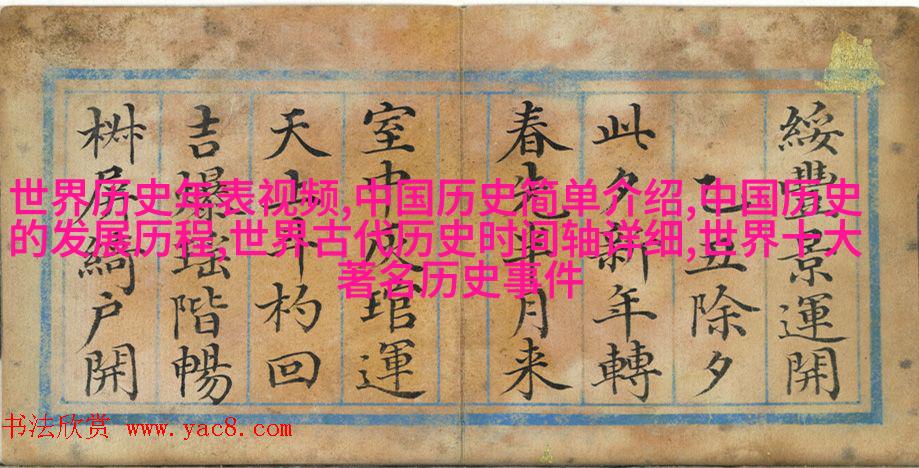 綏豐景運開
乙丑除夕
此夕新年轉
春先半月来
室中葭琯運
天上斗杓回
吉爆瑶階暢
屏綺户開
世界历史年表视频,中国历史简单介绍,中国历史
的发展历程,世界古代历史时间轴详细,世界十大
著名历史事件
书法欣赏 www.yac8.com